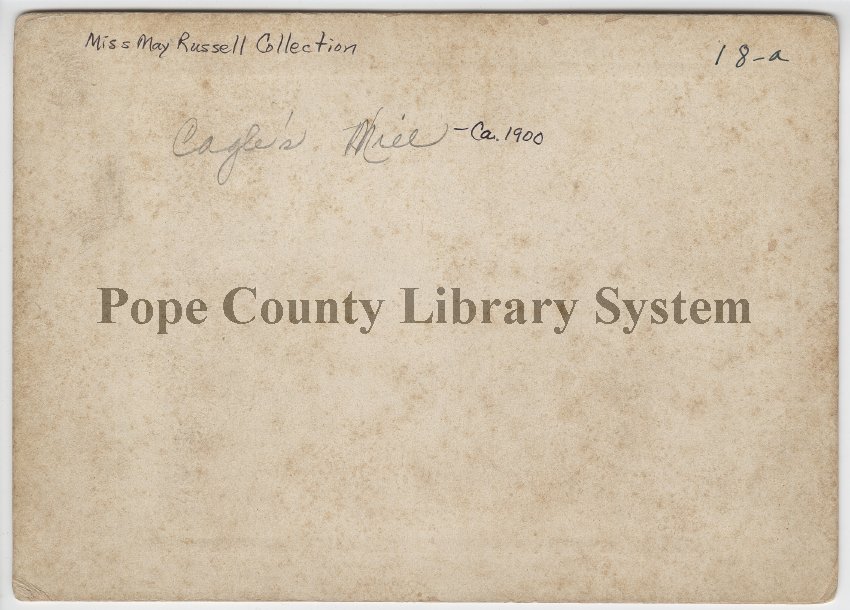 Miss May Russell Collection
18-a
Cagle's Mill - Ca. 1900
Pope County Library System